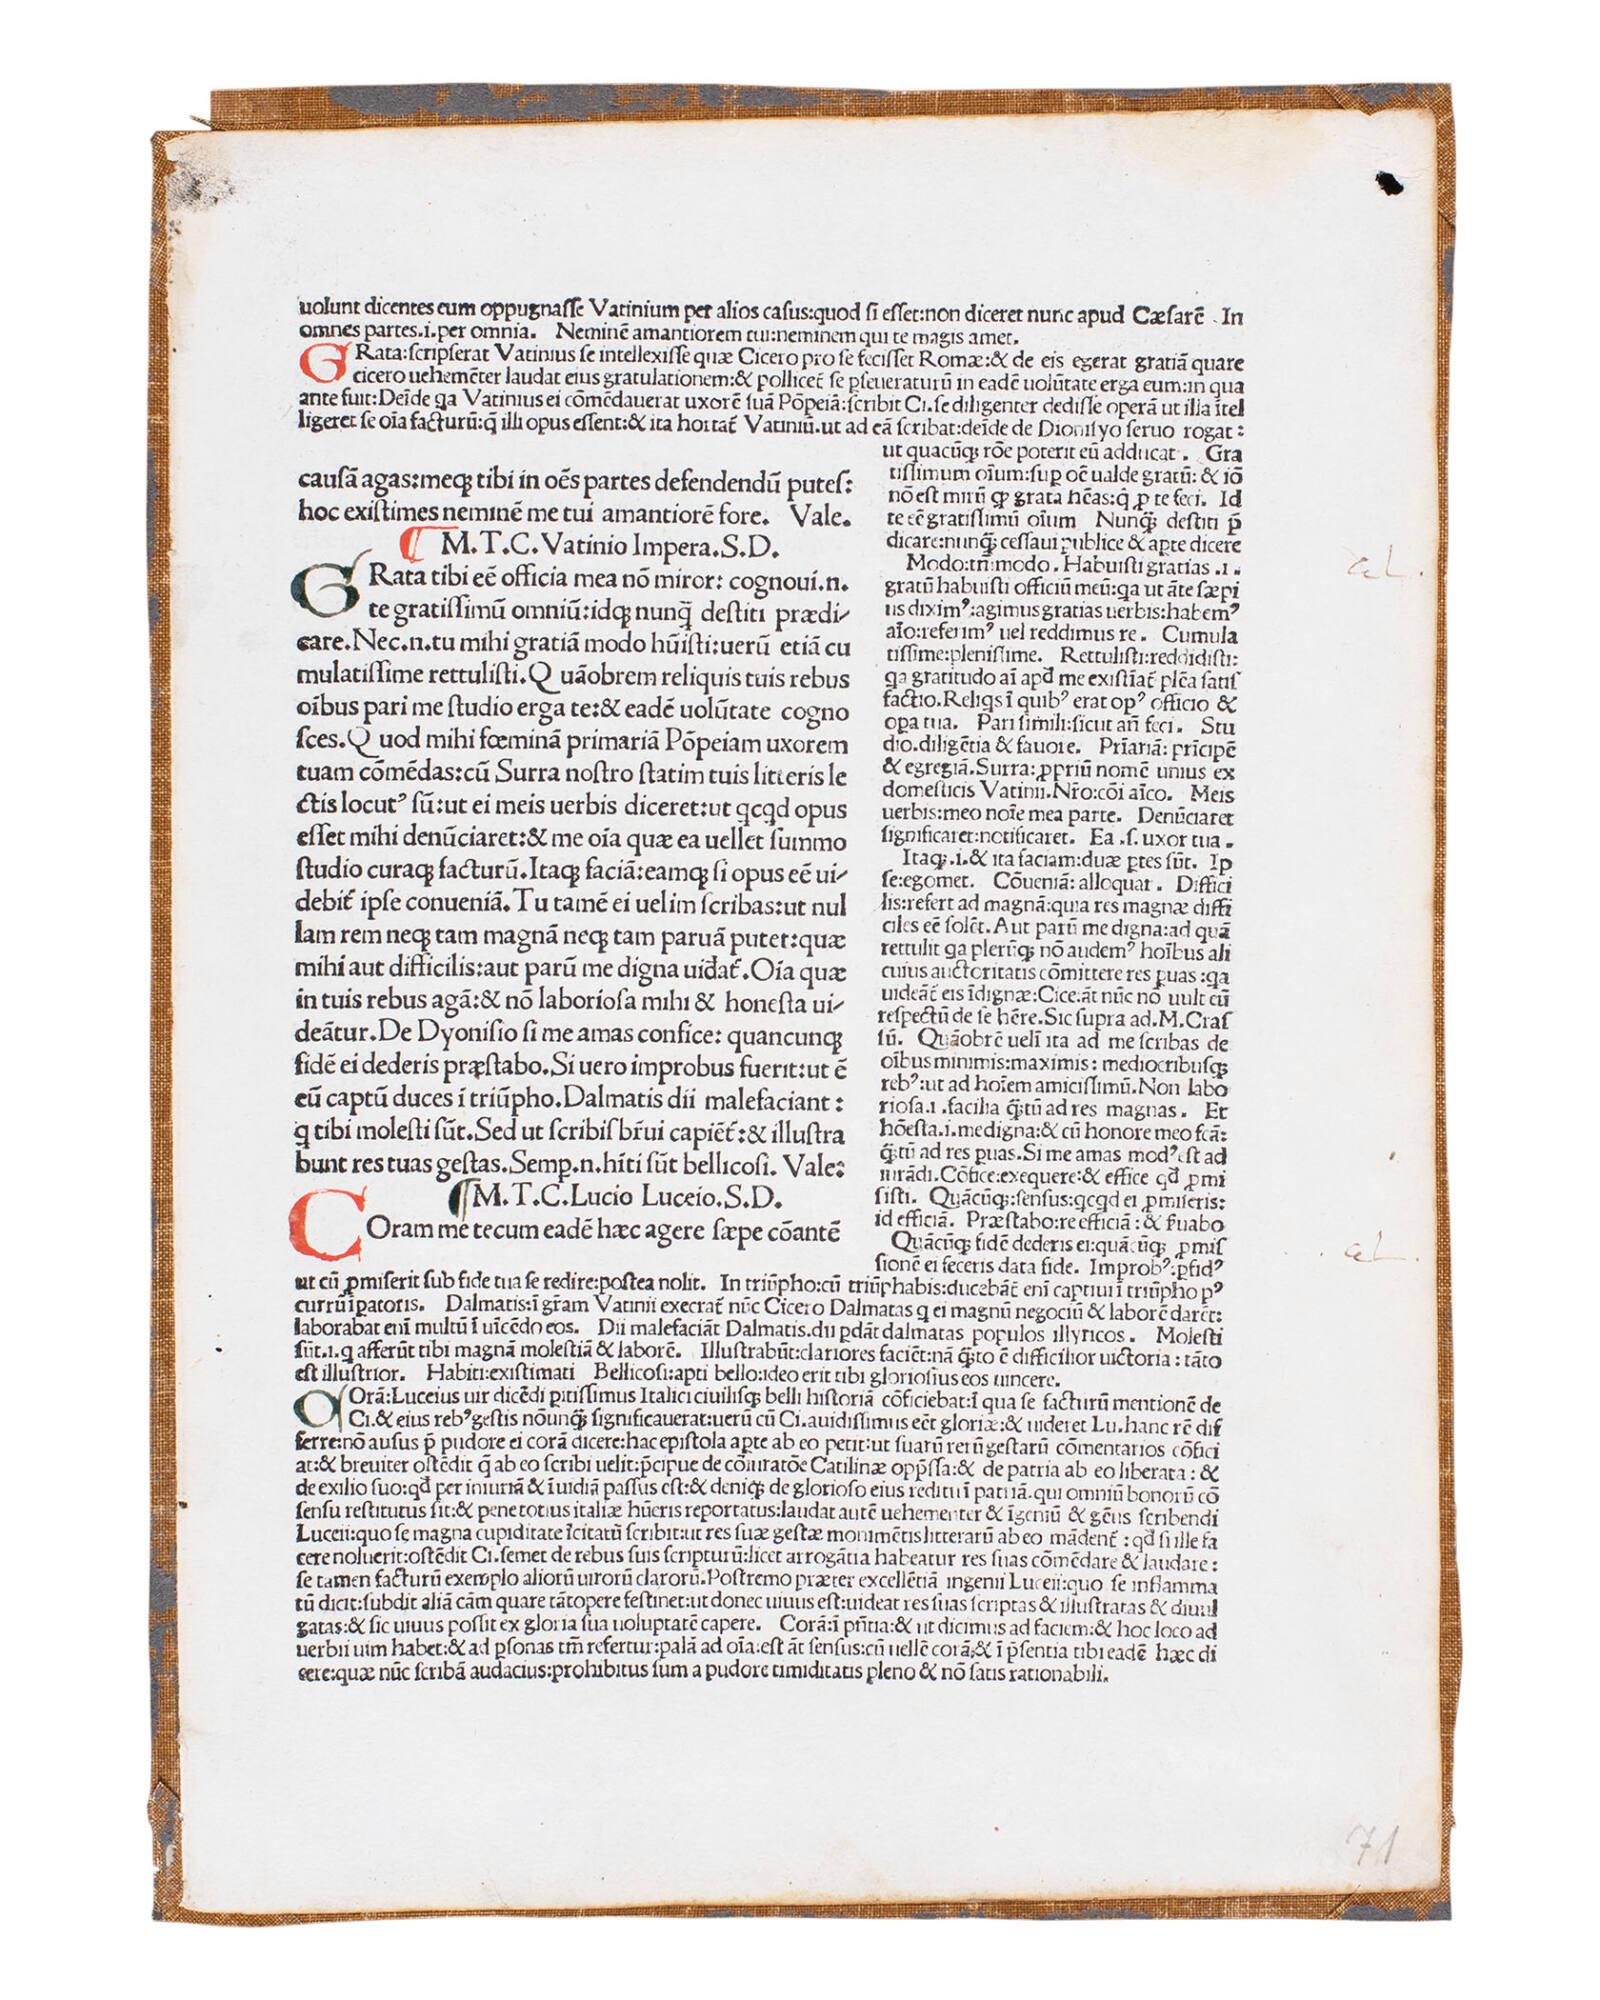 uolunt dicentes eum oppugnasse Vatinium per alios casus:quod si esset:non diceret nunc apud Cæsarē .In
omnes partes.i.per omnia. Neminē amantiorem tui:neminem qui te magis amet.
GRata:scripserat Vatinius se intellexisse quæ Cicero pro se fecisset Romæ:& de eis egerat gratiā quare
cicero uehemēter laudat eius gratulationem:& pollicet᷑ se ꝑseueraturū in eadē uolūtate erga eum:in qua
ante fuit:Deīde qa Vatinius ei cōmēdauerat uxorē suā Pōpeiā:scribit Ci.se diligenter dedisse operā ut illa ītel
ligeret se oīa facturū:q̄ illi opus essent:& ita hortat᷑ Vatiniū.ut ad eā scribat:deīde de Dionisyo seruo rogat:
causā agas:meqꝫ tibi in oēs partes defendendū putes:
hoc existimes neminē me tui amantiorē fore. Vale.
¶ M.T.C.Vatinio Impera.S.D.
GRata tibi eē officia mea nō miror: cognoui.n.
te gratissimū omniū:idqꝫ nunq̄ destiti prædi-
care.Nec.n.tu mihi gratiā modo hūisti:uerū etiā cu
mulatissime rettulisti.Quāobrem reliquis tuis rebus
oībus pari me studio erga te:& eadē uolūtate cogno
sces.Quod mihi fœminā primariā Pōpeiam uxorem
tuam cōmēdas:cū Surra nostro statim tuis litteris le
ctis locutꝰ sū:ut ei meis uerbis diceret:ut qcqd opus
esset mihi denūciaret:& me oīa quæ ea uellet summo
studio curaqꝫ facturū.Itaqꝫ faciā:eamqꝫ si opus eē ui-
debit᷑ ipse conueniā.Tu tamē ei uelim scribas:ut nul
lam rem neqꝫ tam magnā neqꝫ tam paruā putet:quæ
mihi aut difficilis:aut parū me digna uideat᷑.Oīa quæ
in tuis rebus agā:& nō laboriosa mihi & honesta ui-
deātur.De Dyonisio si me amas confice: quancunqꝫ
fidē ei dederis præstabo.Si uero improbus fuerit:ut ē
eū captū duces ī triūpho.Dalmatis dii malefaciant:
q̄ tibi molesti sūt.Sed ut scribis br̄ui capiēt᷑:& illustra
bunt res tuas gestas.Semꝑ.n.hīti sūt bellicosi. Vale:
¶M.T.C.Lucio Luceio.S.D.
COram me tecum eadē hæc agere sæpe cōantē
ut quacūqꝫ rōe poterit eū adducat. Gra
tissimum oīum:suꝑ oē ualde gratū: & iō
nō est mirū qꝫ grata hēas:q̄ ꝓ te feci. Id
te eē gratissimū oīum Nunq̄ destiti p̄
dicare:nunq̄ cessaui publice & apte dicere
Modo:tm̄:modo. Habuisti gratias .i.
gratū habuisti officiū meū:qa ut āte sæpi
us diximꝰ:agimus gratias uerbis:habemꝰ
aīo:referimꝰ uel reddimus re. Cumula
tissime:plenissime. Rettulisti:reddidisti:
qa gratitudo aī apd me existīat᷑ plēa satis
factio.Reliqs ī quibꝰ erat opꝰ officio &
opa tua. Pari simili:sicut añ feci. Stu
dio.diligētia & fauore. Prīariā: prīcipē
& egregiā.Surra:ꝓpriū nomē unius ex
domesticis Vatinii.Nr̄o:cōi aīco. Meis
uerbis:meo noīe mea parte. Denūciaret
significaret:notificaret. Ea .s. uxor tua.
Itaqꝫ.i.& ita faciam:duæ ꝑtes sūt. Ip
se:egomet. Cōueniā: alloquar. Diffici
lis:refert ad magnā:quia res magnæ diffi
ciles eē solēt.Aut parū me digna:ad quā
rettulit qa plerūqꝫ nō audemꝰ hoībus ali
cuius auctoritatis cōmittere res ꝑuas:qa
uideāt᷑ eis īdignæ:Cice.āt nūc nō uult eū
respectū de se hēre.Sic supra ad.M.Cras
sū. Quāobrē uelī ita ad me scribas de
oībus minimis:maximis: mediocribusqꝫ
rebꝰ:ut ad hoīem amicissimū.Non labo
riosa.i.facilia q̄tū ad res magnas. Et
hōesta.i.me digna:& cū honore meo fcā:
q̄tū ad res ꝑuas.Si me amas modꝰ est ad
iurādi.Cōfice:exequere:& effice qd ꝓmi
sisti. Quācūqꝫ:sensus:qcqd ei ꝓmiseris:
id efficiā. Præstabo:re efficiā:& f̄uabo
Quācūqꝫ fidē dederis ei:quācūqꝫ ꝓmis
sionē ei feceris data fide. Improbꝰ:ꝑfidꝰ
ut cū ꝓmiserit sub fide tua se redire:postea nolit. In triūpho:cū triūphabis:ducebāt᷑ enī captiui ī triūpho pꝰ
currū īpatoris. Dalmatis:ī gr̄am Vatinii execrat᷑ nūc Cicero Dalmatas q ei magnū negociū & laborē darēt:
laborabat enī multū ī uīcēdo eos. Dii malefaciāt Dalmatis.dii ꝑdāt dalmatas populos illyricos. Molesti
sūt.i.q afferūt tibi magnā molestiā & laborē. Illustrabūt:clariores faciēt:nā q̄to ē difficilior uictoria:tāto
est illustrior. Habiti:existimati Bellicosi:apti bello:ideo erit tibi gloriosius eos uincere.
COrā:Luceius uir dicēdi ꝑitissimus Italici ciuilisqꝫ belli historiā cōficiebat:ī qua se facturū mentionē de
Ci.& eius rebꝰ gestis nōunq̄ significauerat:uerū cū Ci.auidissimus eēt gloriæ:& uideret Lu.hanc rē dif
ferre:nō ausus p̄ pudore ei corā dicere:hac epistola apte ab eo petit:ut suarū rerū gestarū cōmentarios cōfici
at:& breuiter ostēdit q̄ ab eo scribi uelit:p̄cipue de cōiuratōe Catilinæ opp̄ssa:& de patria ab eo liberata: &
de exilio suo:qd per iniuriā & īuidiā passus est:& deniqꝫ de glorioso eius reditu ī patriā.qui omniū bonorū cō
sensu restitutus sit:& pene totius italiæ hūeris reportatus:laudat autē uehementer & īgeniū & gēus scribendi
Luceii:quo se magna cupiditate īcitatū scribit:ut res suæ gestæ monimētis litterarū ab eo mādent᷑:qd si ille fa
cere noluerit:ostēdit Ci.semet de rebus suis scripturū:licet arrogātia habeatur res suas cōmēdare & laudare:
se tamen facturū exemplo aliorū uirorū clarorū.Postremo præter excellētiā ingenii Luceii:quo se inflamma
tū dicit:subdit aliā cām quare tātopere festinet:ut donec uiuus est:uideat res suas scriptas & illustratas & diuul
gatas:& sic uiuus possit ex gloria sua uoluptatē capere. Corā:ī pn̄tia:& ut dicimus ad faciem:& hoc loco ad
uerbii uim habet:& ad ꝑsonas tm̄ refertur:palā ad oīa:est āt sensus:cū uellē corā:& ī p̄sentia tibi eadē hæc di
cere:quæ nūc scribā audacius:prohibitus sum a pudore timiditatis pleno & nō satis rationabili.
71